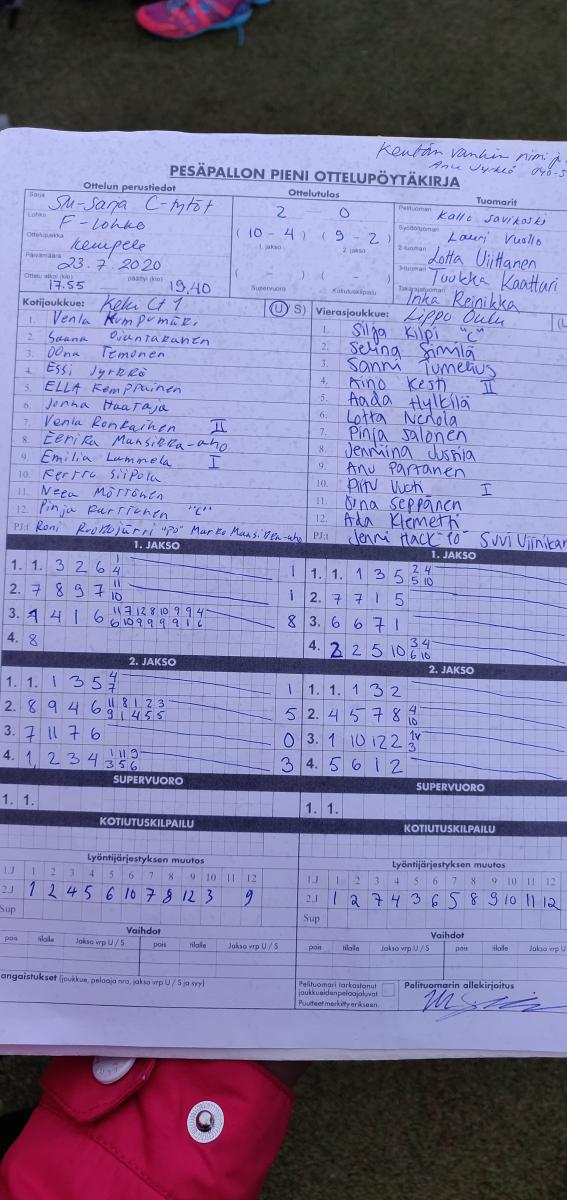 Kentän vanhin nimi ja
Anu Jyrkkö 040-5
PESÄPALLON PIENI OTTELUPÖYTÄKIRJA
Ottelun perustiedot
Sarja SM-Sarja C-tytöt
Lohko F-lohko
Ottelupaikka Kempele
Päivämäärä 23.7.2020
Ottelu alkoi (klo) 17.55 päättyi (klo) 19.40
Ottelutulos
2 0
(10 - 4) (9 - 2)
1. jakso 2. jakso
( - ) ( - )
Supervuoro Kotiutuskilpailu
Tuomarit
Pelituomari Kalle Savikoski
Syöttötuomari Lauri Vuollo
2-tuomari Lotta Viittanen
3-tuomari Tuukka Kaattari
Takarajatuomari Inka Reinikka
Kotijoukkue: Keku Ct 1 (U) S)
1. Venla Kumpumäki
2. Saana Ojantakanen
3. Oona Temonen
4. Essi Jyrkkö
5. ELLA Kemppainen
6. Jonna Haataja
7. Venla Ronkainen II
8. Eerika Mansikka-aho
9. Emilia Lammela I
10. Kerttu Siipola
11. Neea Möttönen
12. Pinja Karttunen "C"
PJ:t Roni
Vierasjoukkue: Lippo Oulu
1. Silja Kilpi "C"
2. Selina Similä
3. Sanni Tumelius
4. Aino Kesti II
5. Aada Hylkilä
6. Lotta Nerola
7. Pinja Salonen
8. Jenmina Jussila
9. Anu Partanen
10. I
11. Oona Seppänen
12. Ada Klemetti
PJ:t Jenni Hack Suvi Viinikan
1. JAKSO
1. 1. 3 2 6 1 4 1
2. 7 8 9 7 11 10 1
3. 1 4 1 6 11 7 12 8 10 9 9 4 6 10 9 9 9 9 1 6 8
4. 8
1. JAKSO
1. 1. 1 3 5 2 4 5 10
2. 7 7 1 5
3. 6 6 7 1
4. 2 2 5 10 3 4 6 10
2. JAKSO
1. 1. 1 3 5 4 7 1
2. 8 9 4 6 11 8 1 2 3 9 1 4 5 5 5
3. 7 11 7 6 0
4. 1 2 3 4 1 11 9 3 5 6 3
2. JAKSO
1. 1. 1 3 2
2. 4 5 7 8 4 10
3. 1 10 12 2 3
4. 5 6 1 2
SUPERVUORO
1. 1.
SUPERVUORO
1. 1.
KOTIUTUSKILPAILU
KOTIUTUSKILPAILU
Lyöntijärjestyksen muutos
1.J 1 2 3 4 5 6 7 8 9 10 11 12
2.J 1 2 4 5 6 10 7 8 12 3 9
Sup
Lyöntijärjestyksen muutos
1.J 1 2 3 4 5 6 7 8 9 10 11 12
2.J 1 2 7 4 3 6 5 8 9 10 11 12
Sup
Vaihdot
pois tilalle Jakso vrp U / S pois tilalle Jakso vrp U / S
Vaihdot
pois tilalle Jakso vrp U / S pois tilalle Jakso vrp U / S
angaistukset (joukkue, pelaaja nro, jakso vrp U / S ja syy)
Pelituomari tarkastanut
joukkueiden pelaajaluvat.
Puutteet merkitty erikseen.
Pelituomarin allekirjoitus